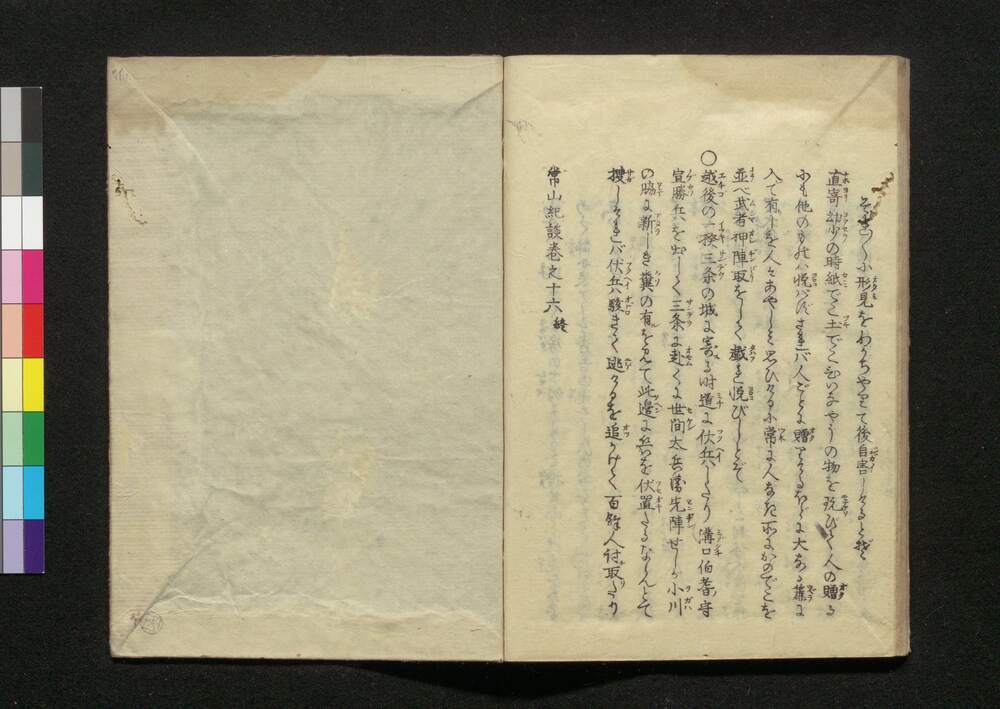 形見をわかちやりて後自害しけるとぞ
直寄幼少の時紙でこ土でこなどいふやうの物を玩びて人の贈る
にも他のものハ悦バずされバ人ごとに贈りけるほどに大なる箱に
入て有しを人々あやしと思ひけるに常に人なき所にかのでこを
並べ武者押陣取をして戯れ悦びしとぞ
〇越後の一揆三条の城に寄る時道に伏兵ハしたり溝口伯耆守
宣勝兵を出して三条に赴くに世間太兵衛先陣せしが小川
の脇に新しき糞の有を見て此邊に兵を伏置たるならんとて
捜しけれバ伏兵ハ駭きて逃るを追かけて百餘人討取たり
常山紀談巻之十六終